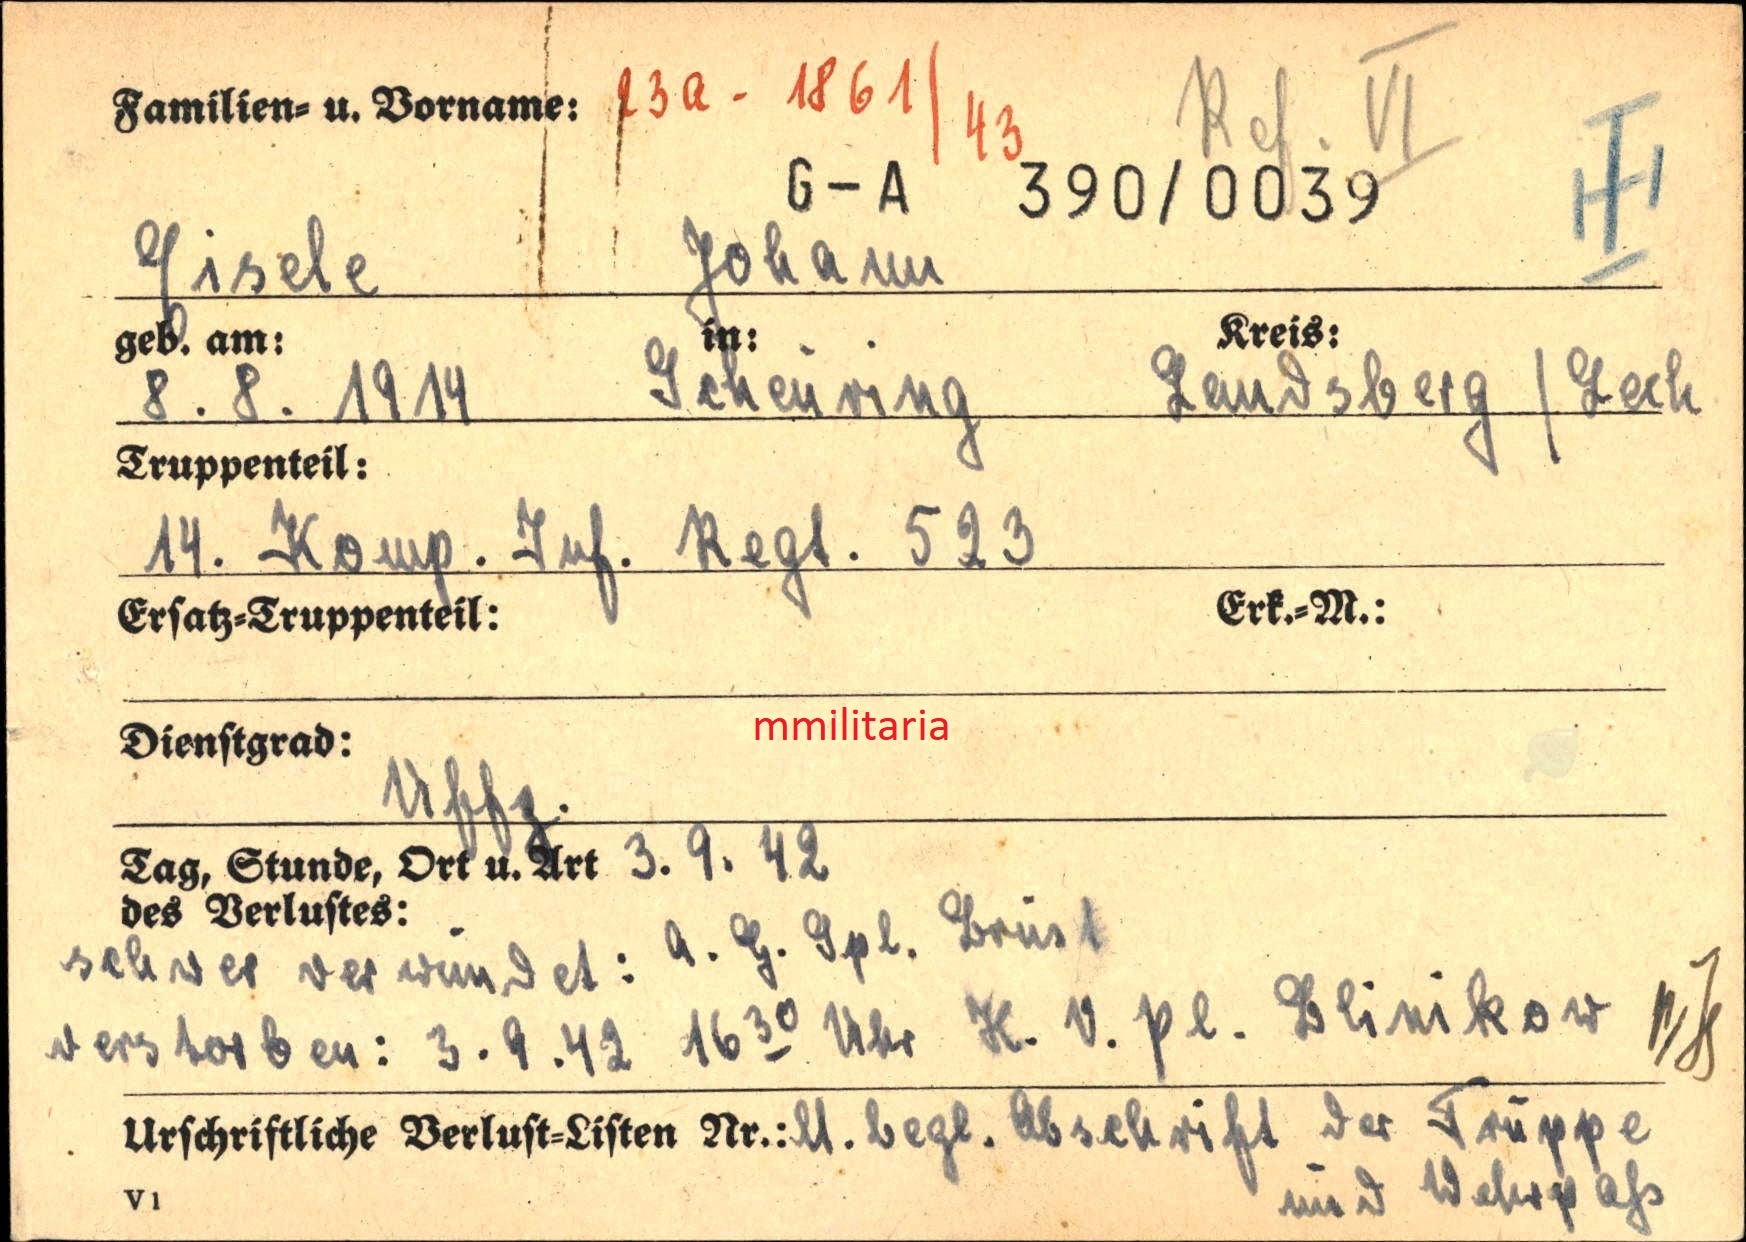 Familien- u. Vorname: 23a - 1861/43 Ref. VI
G-A 390/0039
Gisele Johann
geb. am: in: Kreis:
8. 8. 1914 Scheuring Landsberg / Lech
Truppenteil:
14. Komp. Inf. Regt. 523
Ersatz-Truppenteil: Erk.-M.:
mmilitaria
Dienstgrad:
Uffz.
Tag, Stunde, Ort u. Art 3. 9. 42
des Verlustes:
schwer verwundet: A. G. Spl. Brust
verstorben: 3. 9. 42 16 30 Uhr H. V. Pl. Blinikow
Urschriftliche Verlust-Listen Nr.: lt. begl. Abschrift der Truppe
und Wehrpaß
V 1